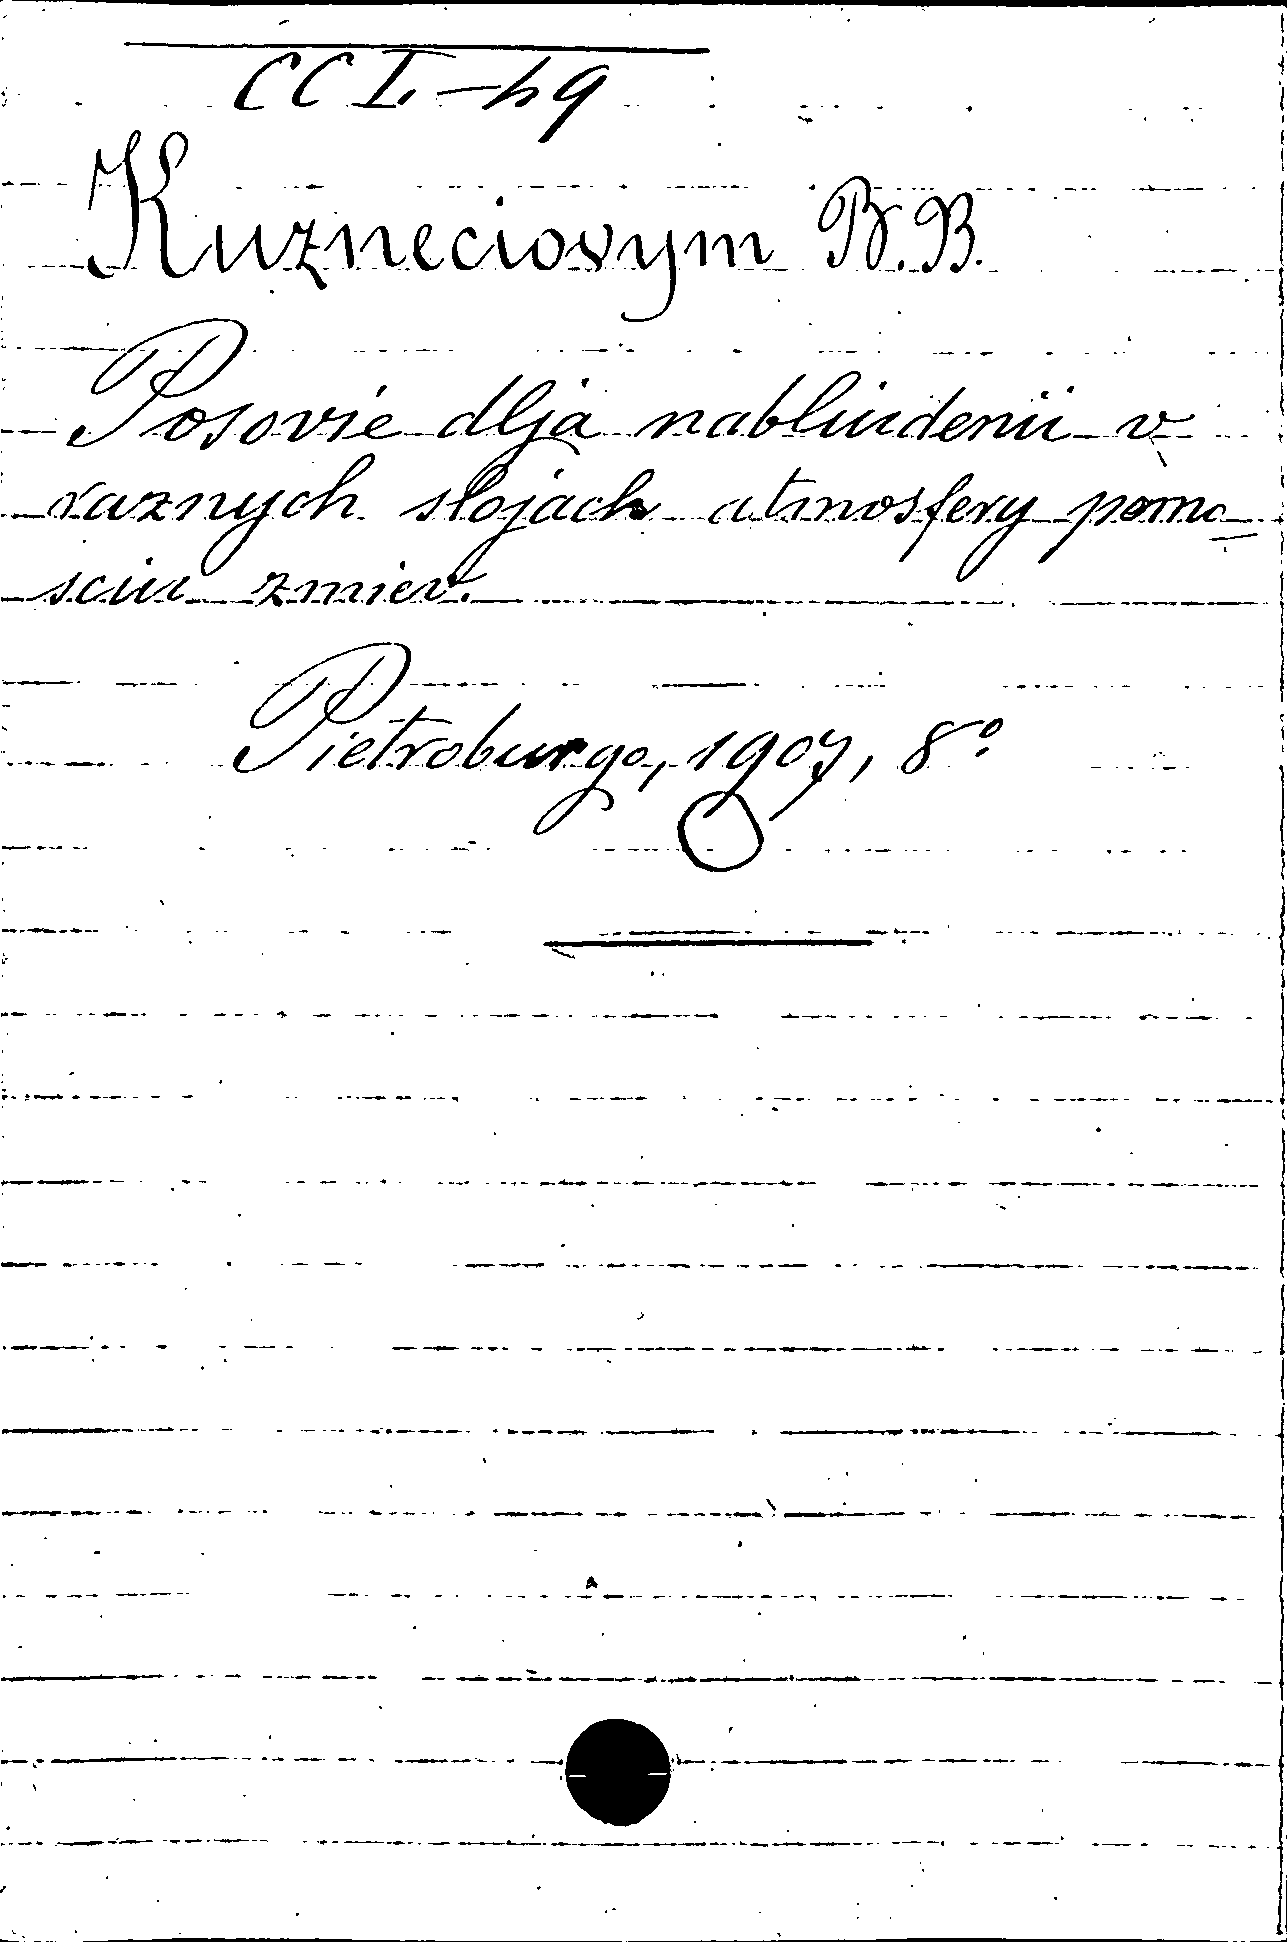 CCI-49
Kuzneciovym B.B.
Posovie dlja nabliudenii v
raznych slojach atmosfery pomo
sciu zmiev.
Pietroburgo, 1907, 8º